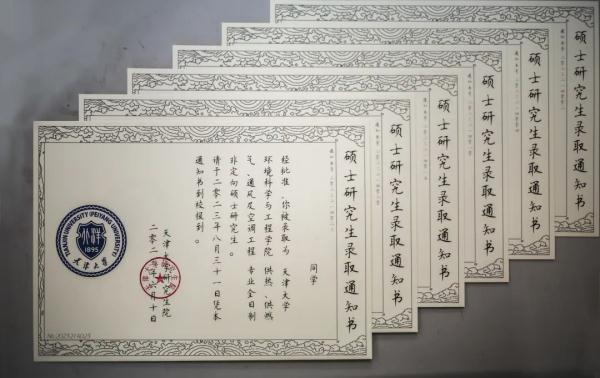 硕士研究生录取通知书
硕士研究生录取通知书
硕士研究生录取通知书
硕士研究生录取通知书
硕士研究生录取通知书
硕士研究生录取通知书
同学
经批准，你被录取为 天津大学
环境科学与工程学院 供热、供燃
气、通风及空调工程 专业全日制
非定向硕士研究生。
请于二零二三年八月三十一日凭本
通知书到校报到。
天津大学研究生院
二零二 年 月十日
TIANJIN UNIVERSITY (PEIYANG UNIVERSITY)
北洋
1895
天津大学